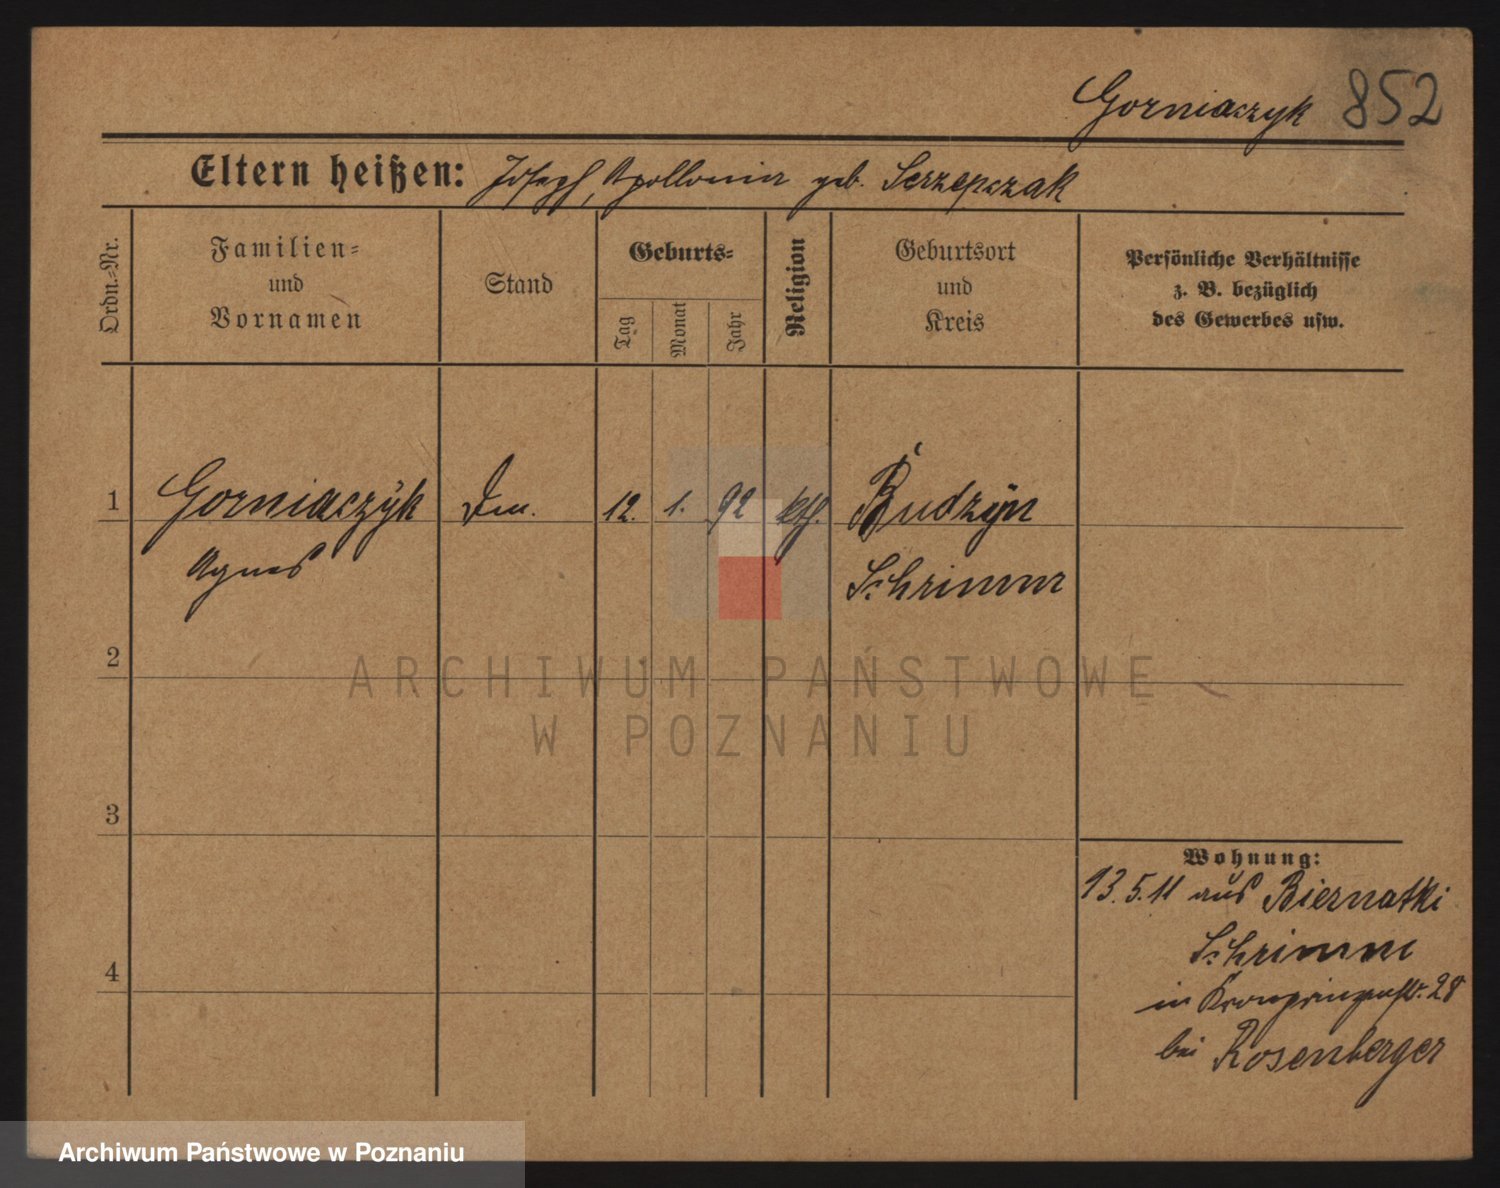 Gorniaczyk 852
Eltern heißen: Josef, Apollonia geb. Serzepczak
Ordn.-Nr.
Familien-
und
Vornamen
Stand
Geburts-
Tag
Monat
Jahr
Religion
Geburtsort
und
Kreis
Persönliche Verhältnisse
z. B. bezüglich
des Gewerbes usw.
1 Gorniaczyk 12. 1. 92 kth. Budzyn
Agnes Schrimm
2
ARCHIWUM PAŃSTWOWE
W POZNANIU
3
Wohnung:
13.5.11 aus Biernatki
Schrimm
4
in Kronprinzenstr. 28
bei Rosenberger
Archiwum Państwowe w Poznaniu